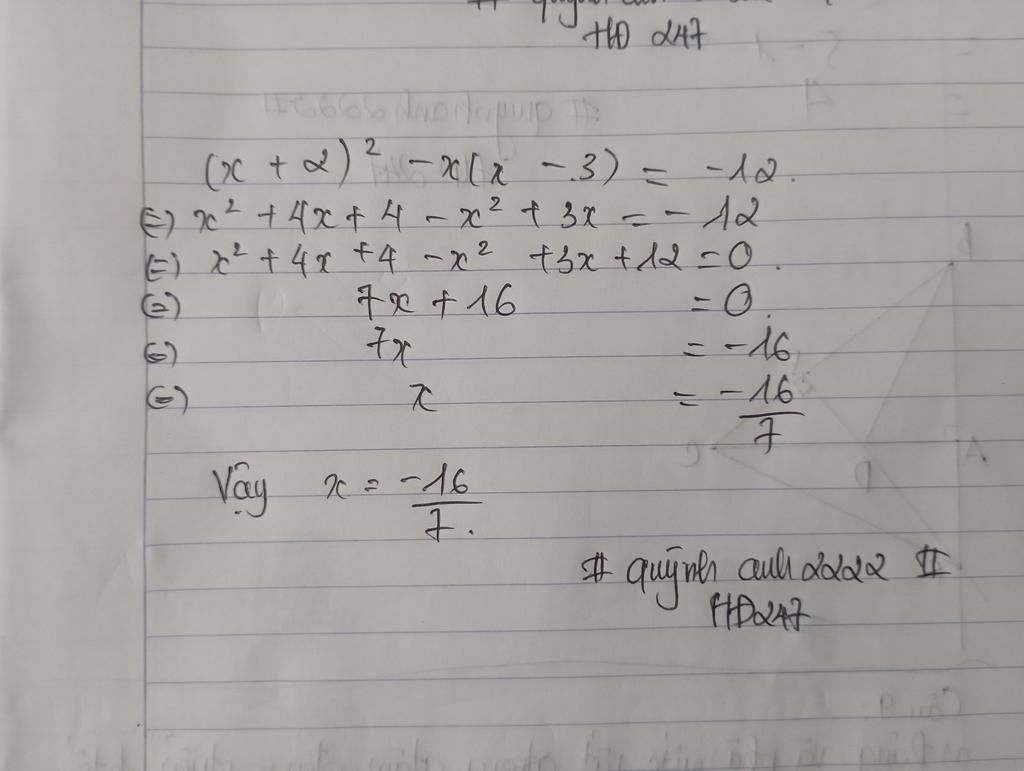 HD 247
(x + 2)² - x(x - 3) = -12.
(=) x² + 4x + 4 - x² + 3x = -12
(=) x² + 4x + 4 - x² + 3x + 12 = 0.
(=) 7x + 16 = 0.
(=) 7x = -16
(=) x = -16/7
Vậy x = -16/7.
# quỳnh anh 2222 #
HD247